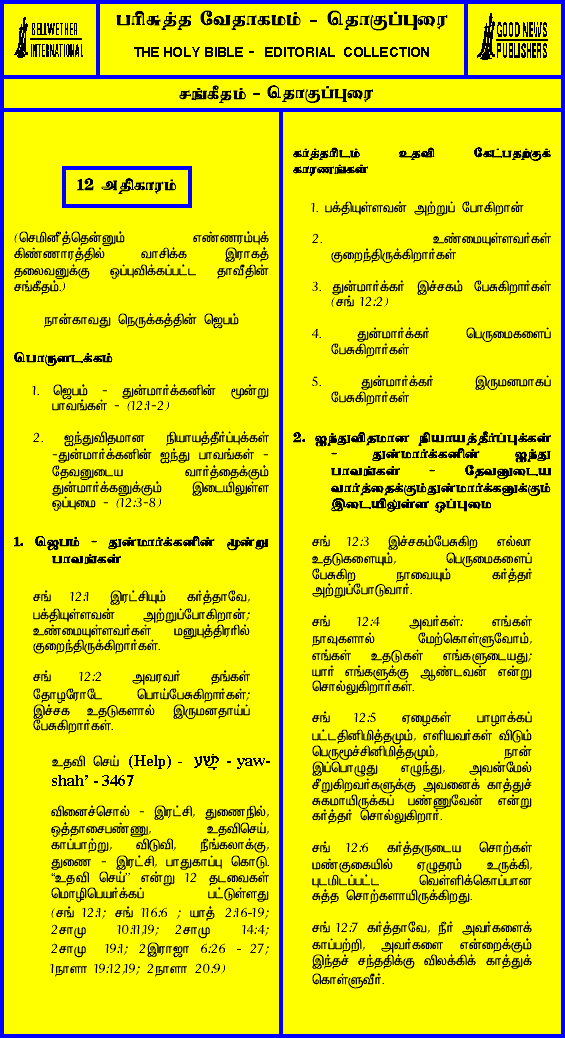 BELLWETHER
INTERNATIONAL
பரிசுத்த வேதாகமம் - தொகுப்புரை
THE HOLY BIBLE - EDITORIAL COLLECTION
GOOD NEWS
PUBLISHERS
சங்கீதம் - தொகுப்புரை
12 அதிகாரம்
(செமினீத்தென்னும் எண்ணரம்புக்
கிண்ணாரத்தில் வாசிக்க இராகத்
தலைவனுக்கு ஒப்புவிக்கப்பட்ட தாவீதின்
சங்கீதம்.)
நான்காவது நெருக்கத்தின் ஜெபம்
பொருளடக்கம்
1. ஜெபம் - துன்மார்க்கனின் மூன்று
பாவங்கள் - (12:1-2)
2. ஐந்துவிதமான நியாயத்தீர்ப்புக்கள்
-துன்மார்க்கனின் ஐந்து பாவங்கள் -
தேவனுடைய வார்த்தைக்கும்
துன்மார்க்கனுக்கும் இடையிலுள்ள
ஒப்புமை - (12:3-8)
1. ஜெபம் - துன்மார்க்கனின் மூன்று
பாவங்கள்
சங் 12:1 இரட்சியும் கர்த்தாவே,
பக்தியுள்ளவன் அற்றுப்போகிறான்;
உண்மையுள்ளவர்கள் மனுபுத்திரரில்
குறைந்திருக்கிறார்கள்.
சங் 12:2 அவரவர் தங்கள்
தோழரோடே பொய்பேசுகிறார்கள்;
இச்சக உதடுகளால் இருமனதாய்ப்
பேசுகிறார்கள்.
உதவி செய் (Help) - יָשַׁע - yaw-
shah’ - 3467
வினைச்சொல் - இரட்சி, துணைநில்,
ஒத்தாசைபண்ணு, உதவிசெய்,
காப்பாற்று, விடுவி, நீங்கலாக்கு,
துணை - இரட்சி, பாதுகாப்பு கொடு.
“உதவி செய்” என்று 12 தடவைகள்
மொழிபெயர்க்கப் பட்டுள்ளது
(சங் 12:1; சங் 116:6 ; யாத் 2:16-19;
2சாமு 10:11,19; 2சாமு 14:4;
2சாமு 19:1; 2இராஜா 6:26 - 27;
1நாளா 19:12,19; 2நாளா 20:9)
கர்த்தரிடம் உதவி கேட்பதற்குக்
காரணங்கள்
1. பக்தியுள்ளவன் அற்றுப் போகிறான்
2. உண்மையுள்ளவர்கள்
குறைந்திருக்கிறார்கள்
3. துன்மார்க்கர் இச்சகம் பேசுகிறார்கள்
(சங் 12:2)
4. துன்மார்க்கர் பெருமைகளைப்
பேசுகிறார்கள்
5. துன்மார்க்கர் இருமனமாகப்
பேசுகிறார்கள்
2. ஐந்துவிதமான நியாயத்தீர்ப்புக்கள்
- துன்மார்க்கனின் ஐந்து
பாவங்கள் - தேவனுடைய
வார்த்தைக்கும்துன்மார்க்கனுக்கும்
இடையிலுள்ள ஒப்புமை
சங் 12:3 இச்சகம்பேசுகிற எல்லா
உதடுகளையும், பெருமைகளைப்
பேசுகிற நாவையும் கர்த்தர்
அற்றுப்போடுவார்.
சங் 12:4 அவர்கள்: எங்கள்
நாவுகளால் மேற்கொள்ளுவோம்,
எங்கள் உதடுகள் எங்களுடையது;
யார் எங்களுக்கு ஆண்டவன் என்று
சொல்லுகிறார்கள்.
சங் 12:5 ஏழைகள் பாழாக்கப்
பட்டதினிமித்தமும், எளியவர்கள் விடும்
பெருமூச்சினிமித்தமும், நான்
இப்பொழுது எழுந்து, அவன்மேல்
சீறுகிறவர்களுக்கு அவனைக் காத்துச்
சுகமாயிருக்கப் பண்ணுவேன் என்று
கர்த்தர் சொல்லுகிறார்.
சங் 12:6 கர்த்தருடைய சொற்கள்
மண்குகையில் ஏழுதரம் உருக்கி,
புடமிடப்பட்ட வெள்ளிக்கொப்பான
சுத்த சொற்களாயிருக்கிறது.
சங் 12:7 கர்த்தாவே, நீர் அவர்களைக்
காப்பற்றி, அவர்களை என்றைக்கும்
இந்தச் சந்ததிக்கு விலக்கிக் காத்துக்
கொள்ளுவீர்.